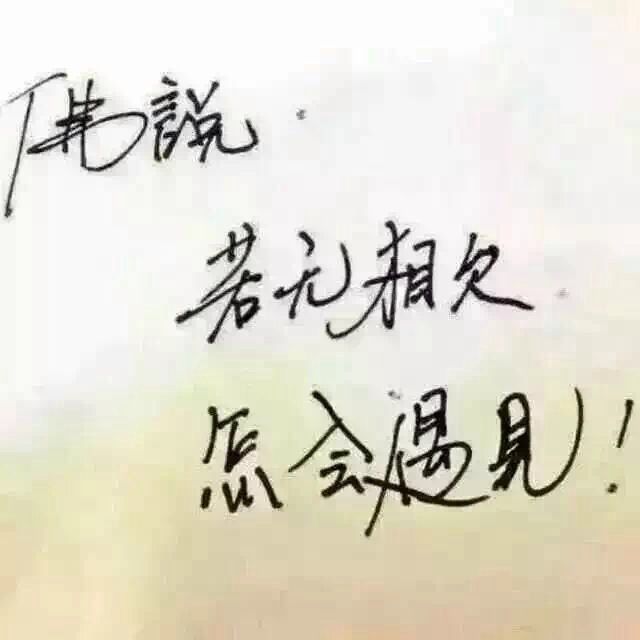 佛説.
若无相欠.
怎会遇見!